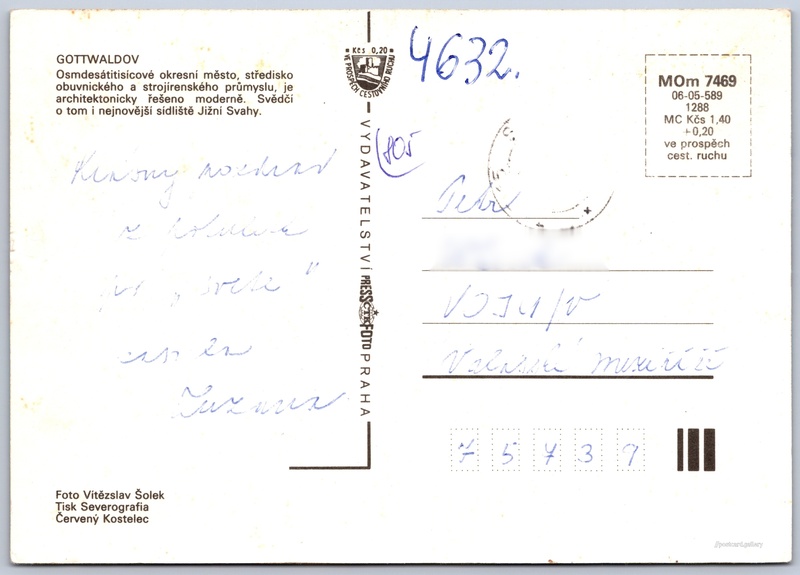 GOTTWALDOV
Osmdesátitisícové okresní město, středisko
obuvnického a strojírenského průmyslu, je
architektonicky řešeno moderně. Svědčí
o tom i nejnovější sídliště Jižní Svahy.
Kčs 0,20
VE PROSPĚCH CESTOVNÍHO RUCHU
4632.
MOm 7469
06-05-589
1288
MC Kčs 1,40
+0,20
ve prospěch
cest. ruchu
Krásný pozdrav
z
Zuzana
VYDAVATELSTVÍ PRESSFOTO PRAHA
ČTK
805
Petr
Valašské Meziříčí
75737
Foto Vítězslav Šolek
Tisk Severografia
Červený Kostelec
//postcard.gallery